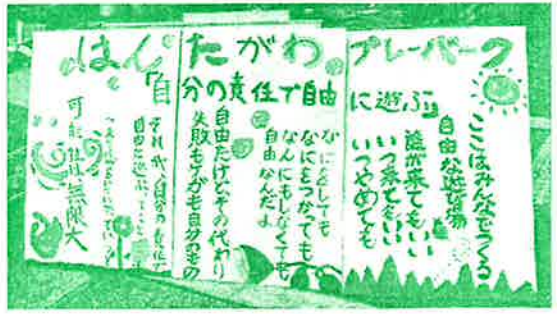 はんたがわ プレーパーク
「自分の責任で自由に遊ぶ」
ここはみんなでつくる
自由な遊び場
誰が来てもいい
いつ来てもいい
いつやめても
なにをしても
なにをつかっても
なんにもしなくても
自由なんだよ
自由だけどその代わり
失敗もケガも自分のもの
それが、自分の責任で
自由に遊ぶ
可能性は無限大